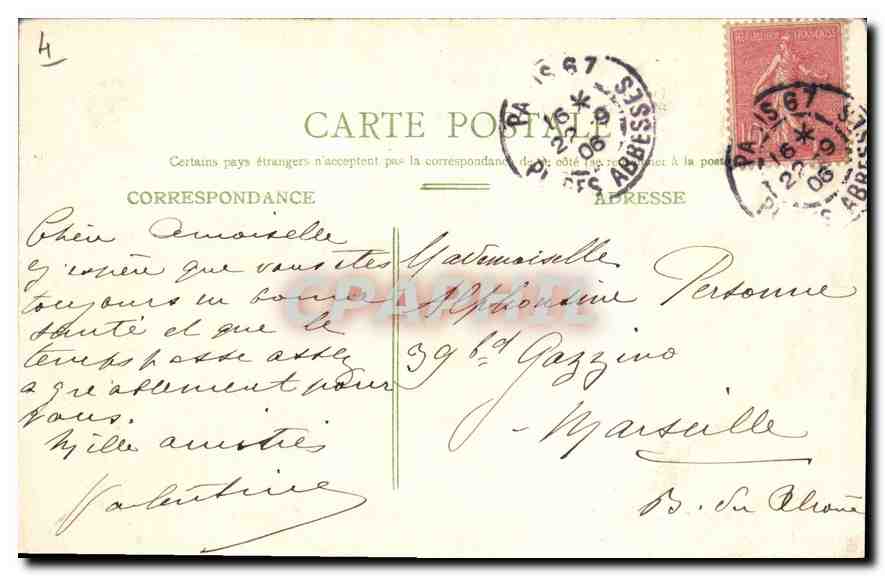 4
CARTE POSTALE
Certains pays étrangers n'acceptent pas la correspondance de ce côté (se renseigner à la poste)
CORRESPONDANCE
ADRESSE
REPUBLIQUE FRANÇAISE
PARIS 67
16 *
22 9
06
PL. DES ABBESSES
PARIS 67
16 *
22 9
06
PL. DES ABBESSES
Chère Amoiselle
J'espère que vous êtes
toujours en bonne
santé et que le
temps passe assez
agréablement pour
vous.
Mille amitiés
Valentine
Mademoiselle
Alphonsine Personne
39 bd Gazzino
Marseille
B. du Rhône
CPAPHIL